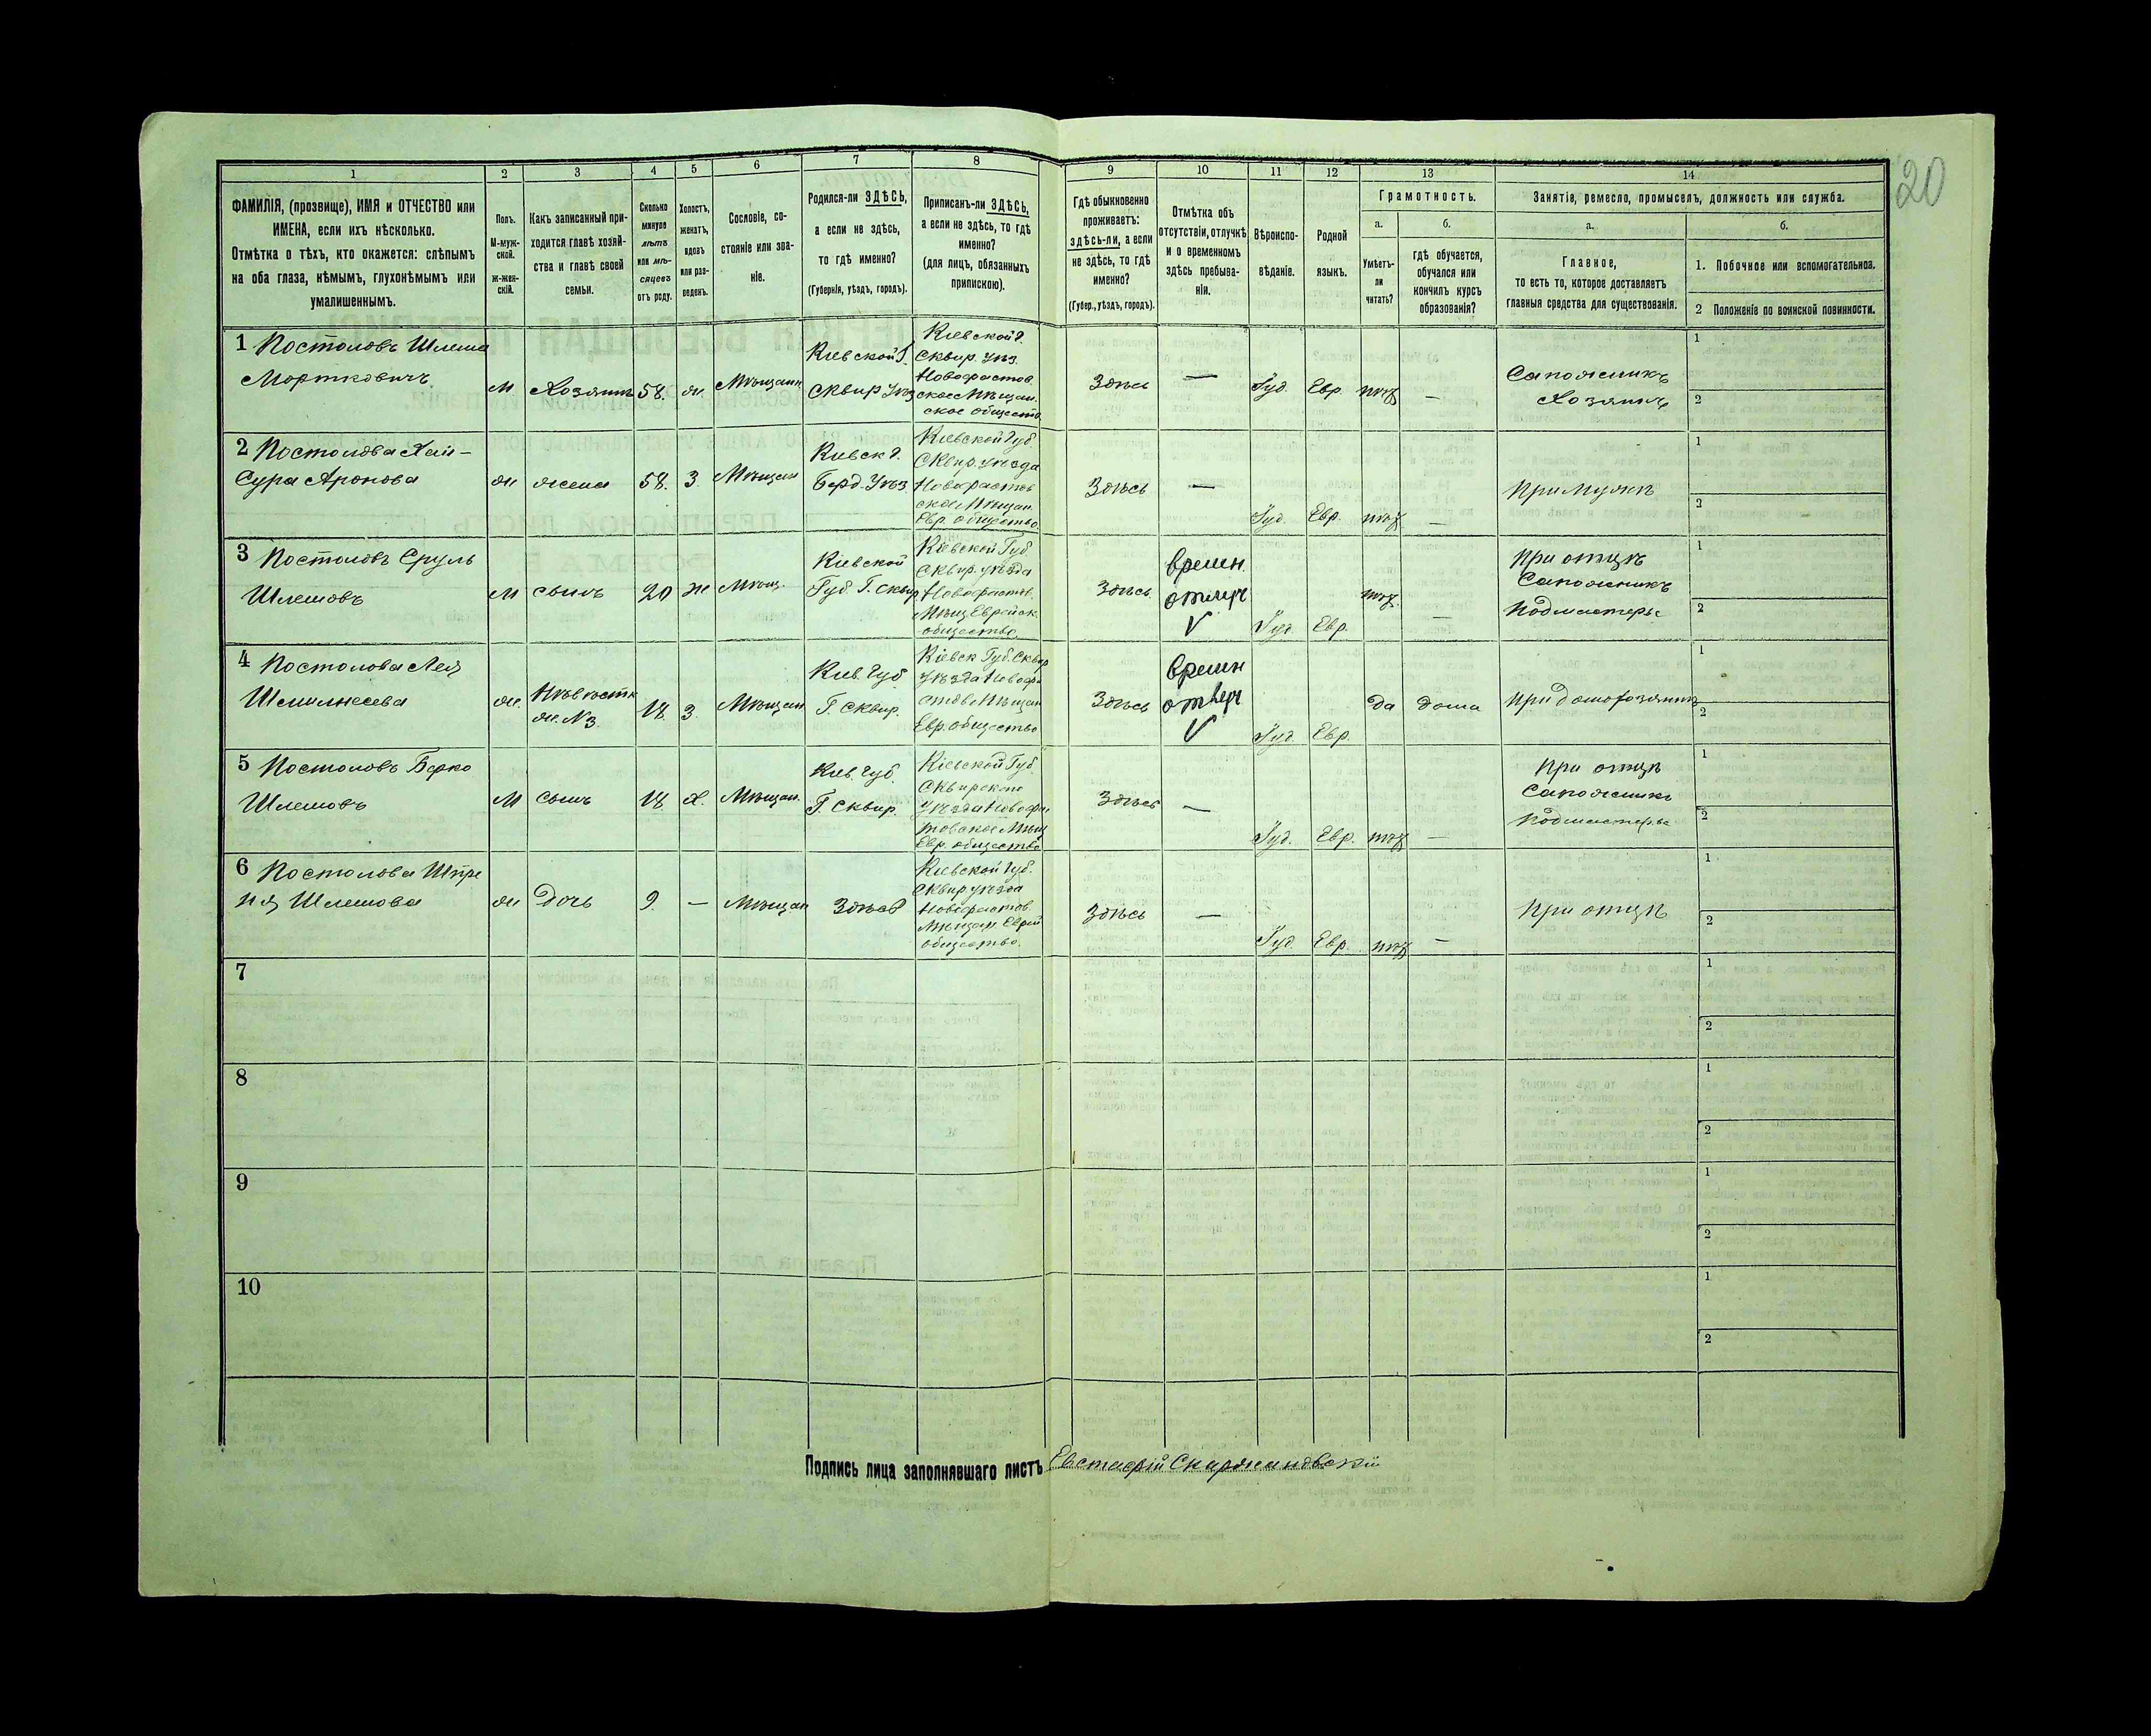 20
1 2 3 4 5 6 7 8 9 10 11 12 13 14
ФАМИЛІЯ, (прозвище), ИМЯ и ОТЧЕСТВО или
ИМЕНА, если ихъ нѣсколько.
Отмѣтка о тѣхъ, кто окажется: слѣпымъ
на оба глаза, нѣмымъ, глухонѣмымъ или
умалишеннымъ.
Полъ.
М-муж-
ской.
Ж-жен-
скій.
Какъ записанный при-
ходится главѣ хозяй-
ства и главѣ своей
семьи.
Сколько
минуло
лѣтъ
или мѣ-
сяцевъ
отъ роду.
Холостъ,
женатъ,
вдовъ
или раз-
веденъ.
Сословіе, со-
стояніе или зва-
ніе.
Родился-ли ЗДѢСЬ,
а если не здѣсь,
то гдѣ именно?
(Губернія, уѣздъ, городъ).
Приписанъ-ли ЗДѢСЬ,
а если не здѣсь, то гдѣ
именно?
(для лицъ, обязанныхъ
припискою).
Гдѣ обыкновенно
проживаетъ:
здѣсь-ли, а если
не здѣсь, то гдѣ
именно?
(Губер., уѣздъ, городъ).
Отмѣтка объ
отсутствіи, отлучкѣ
и о временномъ
здѣсь пребыва-
ніи.
Вѣроиспо-
вѣданіе.
Родной
языкъ.
Грамотность.
а.
Умѣетъ-
ли
читать?
б.
гдѣ обучается,
обучался или
кончилъ курсъ
образованія?
Занятіе, ремесло, промыселъ, должность или служба.
а.
Главное,
то есть то, которое доставляетъ
главныя средства для существованія.
б.
1. Побочное или вспомогательное.
2 Положеніе по воинской повинности.
1 Постоловъ Шлема
Мортковичъ
м
Хозяинъ
58.
ж.
Мѣщан.
Кіевской Г.
Сквир Уѣз
Кіевской Г.
Сквир. Уѣз.
Новофастов.
ское Мѣщан.
ское обществ
Здѣсь
—
Іуд.
Евр.
—
Сапожникъ
Хозяинъ
1
2
2 Постолова Хая-
Сура Аронова
ж
жена
58.
З.
Мѣщан
Кіевск Г.
Берд. Уѣз
Кіевской Губ
Сквир. уѣзда
Новофастов
ское Мѣщан.
Евр. общество.
Здѣсь
—
Іуд
Евр.
—
При мужѣ
1
2
3 Постоловъ Сруль
Шлемовъ
м
сынъ
20
ж
Мѣщ.
Кіевской
Губ. Г. Сквир
Кіевской Губ
Сквир. уѣзда
Новофастов.
Мѣщ Еврейск.
общество
Здѣсь.
времен.
отлуч
V
Іуд
Евр.
—
При отцѣ
Сапожникъ
Подмастерье
1
2
4 Постолова Лея
ж.
Невѣстк
ж. №3.
18.
З.
Мѣщан
Кіев. Губ
Г. Сквир.
Кіевск Губ. Сквир
уѣзда Новофа
стов Мѣщан
Евр. общество
Здѣсь
времен
отлуч
V
Іуд.
Евр.
да
дома
1
2
5 Постоловъ Берко
Шлемовъ
М
сынъ
18
Х.
Мѣщан.
Кіев. Губ.
Г. Сквир.
Кіевской Губ.
Сквирского
уѣзда Новофас
товское Мѣщ
Евр. общество
Здѣсь
—
Іуд.
Евр.
—
При отцѣ
Сапожникъ
Подмастерье
1
2
6 Постолова Шпре
ня Шлемова
ж
Дочь
9.
—
Мѣщан
Здѣсь
Кіевской Губ.
Сквир уѣзда
Новофастов
Мѣщан Еврей
общество.
Здѣсь
—
Іуд.
Евр.
—
При отцѣ
1
2
7
1
2
8
1
2
9
1
2
10
1
2
Подпись лица заполнявшаго листъ Евстафій Скаржиновскій